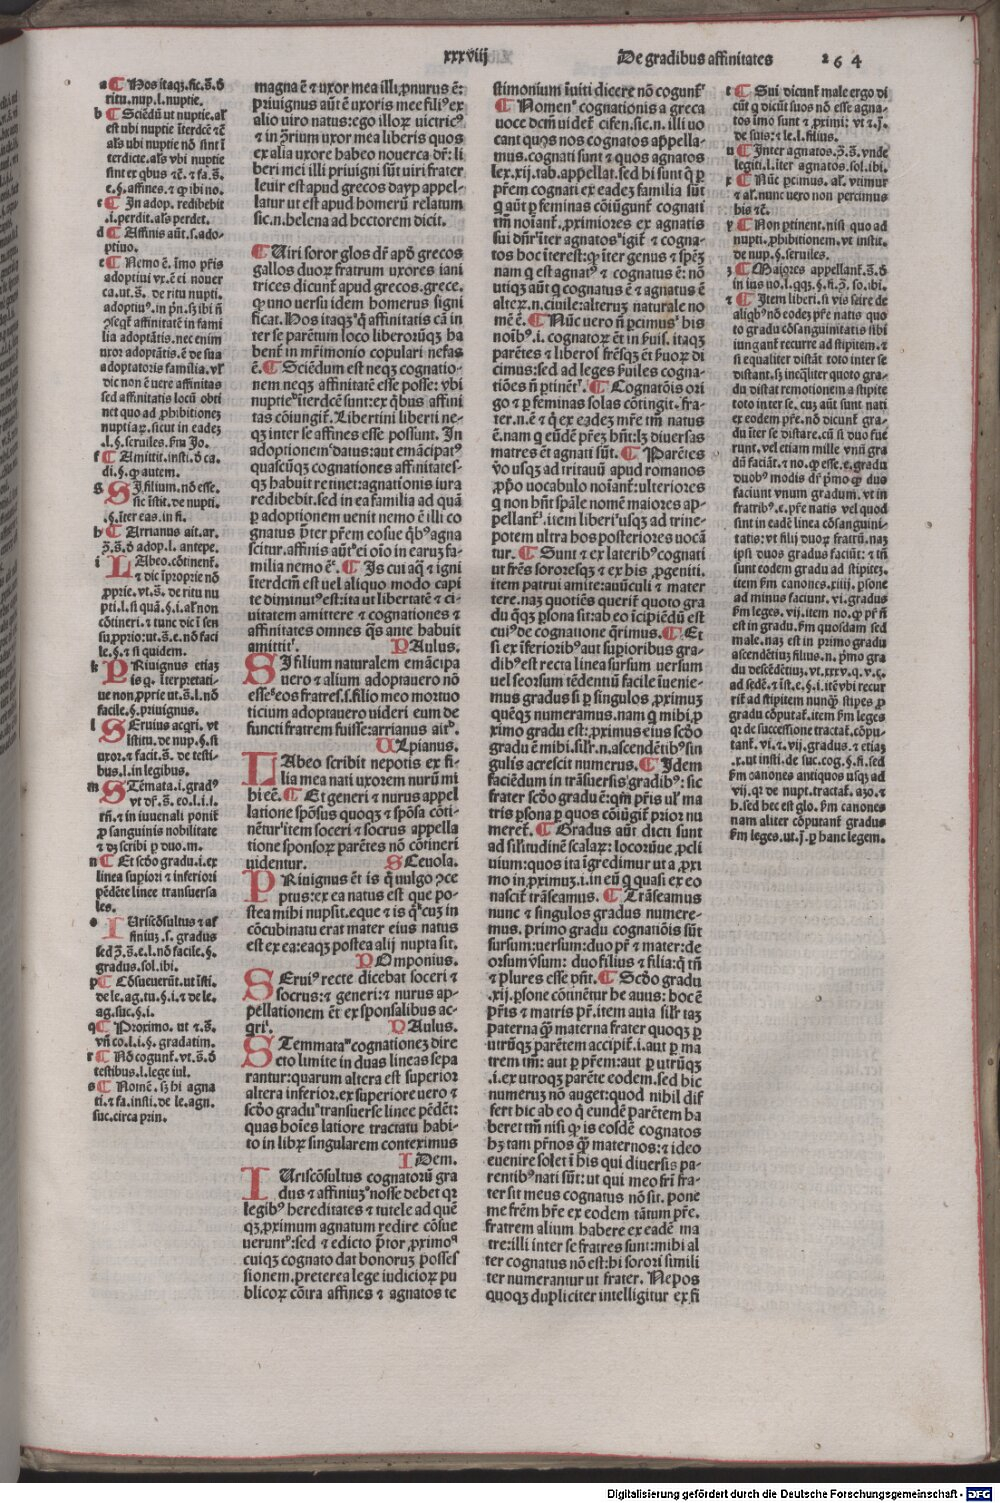 xxxviij
De gradibus affinitates 264
a ¶ Hos itaqȝ. sic. s̄. d̄
ritu. nup. l. nuptie.
b ¶ Sciēdū ut nuptie. al'
est ubi nuptie īterdcē ēt
al's ubi nuptie nō sint ī
terdicte. al's vbi nuptie
e. §. affines. ⁊ q̇ ibi no.
c ¶ In adop. redibebit
.l. perdit. al's perdet.
d ¶ Affinis aūt. s. ado-
ptiuo.
e ¶ Nemo ē. īmo pr̄is
adoptiui vx. ē ei nouer
ca. ut. s̄. de ritu nupti.
lia adoptātis. nec enim
uxor adoptātis. ē de sua
adoptatoris familia. vl'
dic non ē uere affinitas
sed affinitatis locū obti
net quo ad ꝓhibitionez
nuptiaꝝ. sicut in eadez
.l. §. seruiles. f̄m Jo.
f ¶ Amittit. insti. d̄ ca.
di. §. q̇ autem.
g SI filium. nō esse.
sic īstit. de nupti.
.§. īter eas. in fi.
h ¶ Arrianus ait. ar.
s̄. d̄ adop. l. antepe.
i LAbeo. cōtinent'.
⁊ dic īproprie nō
ꝓprie. vt. s̄. de ritu nu
pti. l. si quā. §. i. al' non
cōtineri. ⁊ tunc dic ī sen
su ꝓprio: ut. s̄. e. nō faci
le. §. ⁊ si quidem.
k PRiuignus etiaz
is q. īterpretati-
ue non ꝓprie ut. s̄. l. nō
facile. §. priuignus.
l SEruius acq̄ri. vt
īstitu. de nup. §. si
uxor. ⁊ facit. s̄. de testi-
bus. l. in legibus.
m STēmata. i. gradꝰ
vt dr̄. s̄. eo. l. i. i.
rn̄. ⁊ in iuuenali ponit'
ꝓ sanguinis nobilitate
⁊ dȝ scribi p̱ duo. m.
n ¶ Et scd̄o gradu. i. ex
linea supiori ⁊ inferiori
pēdēte linee transuersa
les.
o IUriscōsultus ⁊ al'
finiuȝ. s. gradus
sed s̄. s̄. e. l. nō facile. §.
gradus. sol. ibi.
p ¶ Cōsueuerūt. ut īsti.
de le. ag. tu. §. i. ⁊ de le.
ag. suc. §. i.
q ¶ Proximo. ut ⁊. s̄.
vn̄ co. l. i. §. gradatim.
r ¶ Nō cogunt'. vt. s̄. d̄
testibus. l. lege iul.
s ¶ Nomē. sȝ hi agna
ti. ⁊ fa. insti. de le. agn.
suc. circa prin.
magna ē ⁊ uxor mea illi ꝓnurus ē:
priuignus aūt ē uxoris mee filiꝰ ex
alio uiro natus: ego illoꝝ uictricꝰ
⁊ in ꝓ̄rium uxor mea liberis quos
ex alia uxore habeo nouerca dr̄: li
beri mei illi priuigni sūt uiri frater
leuir est apud grecos dayp appel-
latur ut est apud homerū relatum
sic. n. helena ad hectorem dicit.
¶ Uiri soror glos dr̄ apd̄ grecos
gallos duoꝝ fratrum uxores iani
trices dicunt' apud grecos. grece.
q̇ uno uersu idem homerus signi
ficat. Hos itaqȝ q̄ affinitatis cā in
ter se parētum loco liberorūqȝ ha
bent' in mr̄imonio copulari nefas
ē. ¶ Sciēdum est neqȝ cognatio-
nem neqȝ affinitatē esse posse: vbi
nuptie īterdcē sunt: ex q̇bus affini
tas cōiungit'. Libertini liberti ne-
qȝ inter se affines esse possunt. In
adoptionem datus: aut emācipatꝰ
quascūqȝ cognationes affinitates-
qȝ habuit retinet: agnationis iura
redibebit. sed in ea familia ad quā
p̱ adoptionem uenit nemo ē illi co
gnatus pt̄er pr̄em eosue q̇bꝰ agna
scitur. affinis aūt ei oīo in earuȝ fa-
milia nemo ē. ¶ Is cui aq̄ ⁊ igni
īterdcm̄ est uel aliquo modo capi
te diminutꝰ est: ita ut libertatē ⁊ ci-
uitatem amittere ⁊ cognationes ⁊
affinitates omnes q̄s ante habuit
amittit'. PAulus.
SI filium naturalem emācipa
uero ⁊ alium adoptauero nō
esse eos fratres. s. filio meo mortuo
ticium adoptauero uideri eum de
functi fratrem fuisse: arrianus ait.
ULpianus.
LAbeo scribit nepotis ex fi-
lia mea nati uxorem nurū mi
hi eē. ¶ Et generi ⁊ nurus appel
latione spōsus quoqȝ ⁊ spōsa cōti-
nētur item soceri ⁊ socrus appella
tione sponsoꝝ parētes nō cōtineri
uidentur. SCeuola.
PRiuignus ēt is q̇ uulgo ɔce
ptus: ex ea natus est que po-
stea mihi nupsit. eque ⁊ is q̇ cuȝ in
cōcubinatu erat mater eius natus
est ex ea: eaqȝ postea alij nupta sit.
POmponius.
SEruiꝰ recte dicebat soceri ⁊
socrus: ⁊ generi: ⁊ nurus ap-
pellationem ēt ex sponsalibus ac-
qri'. PAulus.
STemmata cognationeȝ dire
cto limite in duas lineas sepa
rantur: quarum altera est superior
altera inferior. ex superiore uero ⁊
scd̄o gradu transuerse linee pēdēt:
quas hoīes latiore tractatu habi-
to in libꝝ singularem conteximus
IDem.
IUriscōsultus cognatorū gra
dus ⁊ affiniuȝ nosse debet qꝛ
legibꝰ hereditates ⁊ tutele ad quē
qȝ ꝓximum agnatum redire cōsue
uerunt: sed ⁊ edicto p̄tor ꝓximo
cuiqȝ cognato dat bonoruȝ posses
sionem. preterea lege iudicioꝝ pu
blicoꝝ cōtra affines ⁊ agnatos te
stimonium īuiti dicere nō cogunt'
¶ Nomen cognationis a greca
uoce dcm̄ uidet'. cisen. sic. n. illi uo
cant quos nos cognatos appella-
mus. cognati sunt ⁊ quos agnatos
lex. xij. tab. appellat. sed hi sunt q̇ p̱
pr̄em cognati ex eadeȝ familia sūt
q̇ aūt p̱ feminas cōiūgunt' cognati
tm̄ noīant'. ꝓximiores ex agnatis
sui dn̄r: īter agnatos igit' ⁊ cogna-
tos hoc īterest: q̇ iter genus ⁊ spēȝ
nam q̇ est agnatꝰ ⁊ cognatus ē: nō
utiqȝ aūt q̇ cognatus ē ⁊ agnatus ē
alteꝝ. n. ciuile: alteruȝ naturale no
mē ē. ¶ Nūc uero n̄ ꝑcimus his
noībꝰ. i. cognatoꝝ ēt in s̄uis. itaqȝ
parētes ⁊ liberos fr̄esqȝ ēt s̄uoꝝ di
cimus: sed ad leges s̄uiles cogna-
tiōes n̄ ptinēt'. ¶ Cognatōis ori
go ⁊ p̱ feminas solas cōtingit. fra-
ter. n. ē ⁊ q̇ ex eadeȝ mr̄e tm̄ natus
ē. nam q̇ eūdē pr̄eȝ hn̄t: lȝ diuersas
matres ēt agnati sūt. ¶ Parētes
vo usqȝ ad tritauū apud romanos
ꝓp̄o uocabulo noīant': ulteriores
q̇ non hn̄t sp̄ale nomē maiores ap-
pellant'. item liberi usqȝ ad trine-
potem ultra hos posteriores uocā
tur. ¶ Sunt ⁊ ex lateribꝰ cognati
ut fr̄es sororesqȝ ⁊ ex his ꝓgeniti.
item patrui amite: auūculi ⁊ mater
tere. naȝ quotiēs querit' quoto gra
du q̄qȝ p̱sona sit: ab eo īcipiēdū est
cuiꝰ de cognatione q̄rimus. ¶ Et
si ex īferioribꝰ aut supioribus gra-
dibꝰ est recta linea sursum uersum
uel seorsum tēdentū facile īuenie-
mus gradus si p̱ singulos ꝓximuȝ
quēqȝ numeramus. nam q̇ mihi ꝓ
ximo gradu est: ꝓximus eius scd̄o
gradu ē mihi. sil'r. n. ascendētibꝰ sin
gulis acrescit numerus. ¶ Idem
faciēdum in trāsuersis gradibꝰ: sic
frater scd̄o gradu ē: qm̄ pr̄is ul' ma
tris p̱sona p̱ quos cōiūgit' prior nu
meret'. ¶ Gradus aūt dicti sunt
ad sil'itudinē scalaꝝ: locorūue ꝓcli
uium: quos ita īgredimur ut a ꝓxi
mo in ꝓximuȝ. i. in eū q̇ quasi ex eo
nascit' trāseamus. ¶ Trāseamus
nunc ⁊ singulos gradus numere-
mus. primo gradu cognatiōis sūt
sursum: uersum: duo pr̄ ⁊ mater: de
orsum v̄sum: duo filius ⁊ filia: q̇ tn̄
⁊ plures esse pn̄t. ¶ Scd̄o gradu
.xij. p̱sone cōtinētur he auus: hoc ē
pr̄is ⁊ matris pr̄. item auia sil'r taȝ
paterna q̄ȝ materna frater quoqȝ p̱
utrūqȝ parētem accipit'. i. aut p̱ ma
trem tm̄: aut p̱ pr̄em: aut p̱ utrūqȝ
.i. ex utroqȝ parēte eodem. sed hic
numeruȝ nō auget: quod nihil dif
fert hic ab eo q̇ eundē parētem ha
beret tm̄ nisi q̇ is eosdē cognatos
hȝ tam pr̄nos q̄ȝ maternos: ⁊ ideo
euenire solet ī his qui diuersis pa-
rentibꝰ nati sūt: ut qui meo fr̄i fra-
ter sit meus cognatus nō sit. pone
me fr̄em hr̄e ex eodem tātum pr̄e.
fratrem alium habere ex eadē ma
tre: illi inter se fratres sunt: mihi al
ter cognatus nō est: hi sorori simili
ter numerantur ut frater. Nepos
quoqȝ dupliciter intelligitur ex fi
t ¶ Sui dicunt' male ergo di
cūt q̇ dicūt suos nō esse agna-
tos īmo sunt ⁊ ꝓximi: vt ⁊. j̄.
de suis: ⁊ le. l. filius.
u ¶ Inter agnatos. s̄. s̄. vnde
legiti. l. iter agnatos. sol. ibi.
x ¶ Nūc ꝑcimus. al'. vtimur
⁊ al'. nunc uero non percimus
his ⁊c̄.
y ¶ Non ptinent. nisi quo ad
nupti. ꝓhibitionem. vt instit.
de nup. §. seruiles.
z ¶ Maiores appellant'. s̄. d̄
⁊ ¶ Item liberi. si vis scire de
aliqbꝰ nō eodeȝ pr̄e natis quo
to gradu cōsanguinitatis sibi
iungant' recurre ad stipitem. ⁊
si equaliter distāt toto inter se
distant. sȝ ineq̄liter quoto gra-
du distat remotionem a stipite
toto inter se. cuȝ aūt sunt nati
ex eodem pr̄e. nō dicunt' gra-
du īter se distare. cū si duo fue
runt. vel etiam mille vnū gra
dū faciāt. ⁊ no. q̇ esse. e. gradu
duobꝰ modis dr̄ p̄mo q̇ duo
faciunt vnum gradum. vt in
fratribꝰ. e. pr̄e natis vel quod
sint in eadē linea cōsanguini-
tatis: vt filij duoꝝ fratrū. naȝ
ipsi duos gradus faciūt: ⁊ tn̄
sunt eodem gradu ad stipiteȝ.
item f̄m canones. xiiij. p̱sone
ad minus faciunt. vi. gradus
f̄m leges. vij. item no. q̇ pr̄ n̄
est in gradu. f̄m quosdam sed
male. naȝ est in primo gradu
ascendētiuȝ filius. n. p̄mo gra
du descēdētiuȝ. vt. xxxv. q. v. c̄.
ad sedē. ⁊ īst. e. §. i. itē vbi recur
rit' ad stipitem nunqȝ stipes p̱
gradu cōputat'. item f̄m leges
qꝛ de successione tractat'. cōpu-
tant'. vi. ⁊. vij. gradus. ⁊ etiaȝ
.x. ut insti. de suc. cog. §. fi. sed
f̄m canones antiquos usqȝ ad
vij. qꝛ de nupt. tractat'. azo. ⁊
h. sed hec est glo. f̄m canones
nam aliter cōputant' gradus
f̄m leges. ut. j̄. p̱ hanc legem.
Digitalisierung gefördert durch die Deutsche Forschungsgemeinschaft - DFG